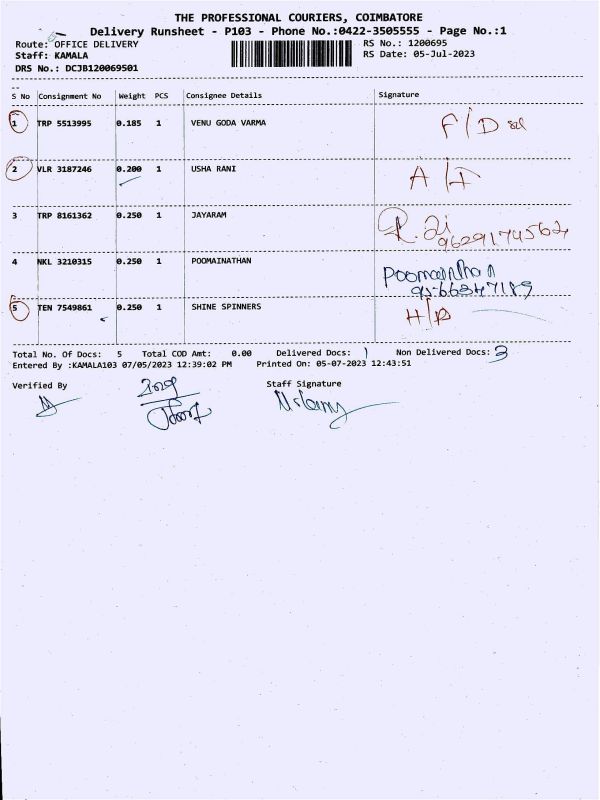 THE PROFESSIONAL COURIERS, COIMBATORE
Delivery Runsheet - P103 - Phone No.:0422-3505555 - Page No.:1
Route: OFFICE DELIVERY RS No.: 1200695
Staff: KAMALA RS Date: 05-Jul-2023
DRS No.: DCJB120069501
S No Consignment No Weight PCS Consignee Details Signature
1 TRP 5513995 0.185 1 VENU GODA VARMA F/D
2 VLR 3187246 0.200 1 USHA RANI A/I
3 TRP 8161362 0.250 1 JAYARAM
9629174562
4 NKL 3210315 0.250 1 POOMAINATHAN Poomainathan
5 TEN 7549861 0.250 1 SHINE SPINNERS H/D
Total No. Of Docs: 5 Total COD Amt: 0.00 Delivered Docs: 1 Non Delivered Docs: 3
Entered By :KAMALA103 07/05/2023 12:39:02 PM Printed On: 05-07-2023 12:43:51
Verified By Staff Signature